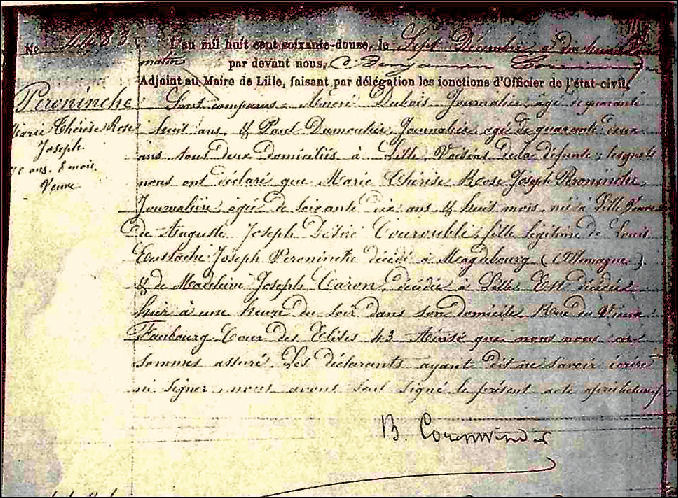 No 1483
L'an mil huit cent soixante-douze, le Sept Décembre à dix heures du
matin par devant nous, Benjamin
Adjoint au Maire de Lille, faisant par délégation les fonctions d'Officier de l'état-civil,
Peroninche
Marie Thérèse Rose
Joseph
70 ans. 8 mois
Veuve
Sont comparus Dubois Journalier, âgé de quarante
huit ans, & Paul Journalier âgé de quarante deux
ans tous deux domiciliés à Lille Voisins de la défunte; lesquels
nous ont déclaré que Marie Thérèse Rose Joseph Peroninche,
Journalière, âgée de soixante dix ans & huit mois, née à Lille Veuve
de Auguste Joseph Désiré Courouble, fille légitime de Louis
Eustache Joseph Peroninche décédé à Magdbourg (Allemagne)
& de Joseph Caron, décédée à Lille. Est décédée
hier à une heure du soir dans son domicile Rue du Vieux
Faubourg Cour des Elites 43 Ainsi que nous nous en
sommes assuré. Les déclarants ayant dit ne savoir écrire
ni signer, nous avons seul signé le présent acte après lecture
B Corenwinder